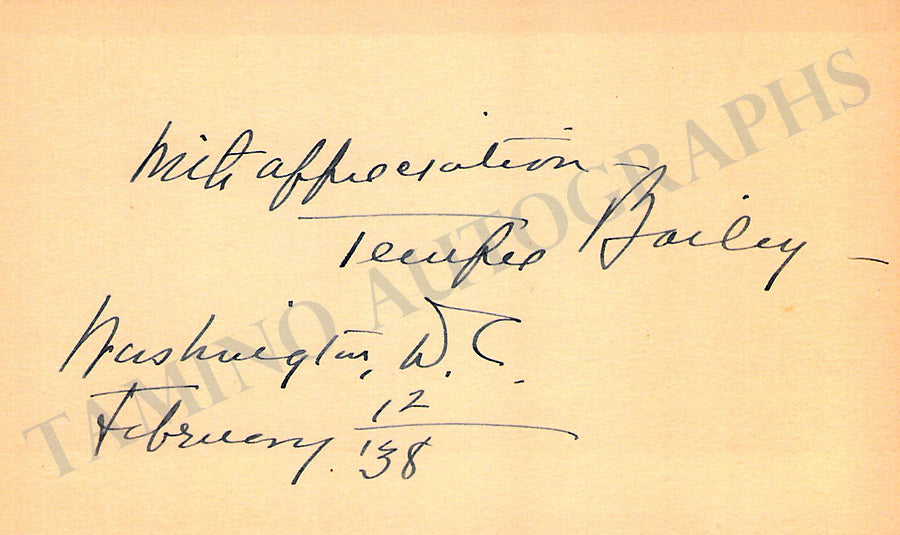 With appreciation —
Temple Bailey —
Washington, D.C.
February 12
'38
TAMINO AUTOGRAPHS